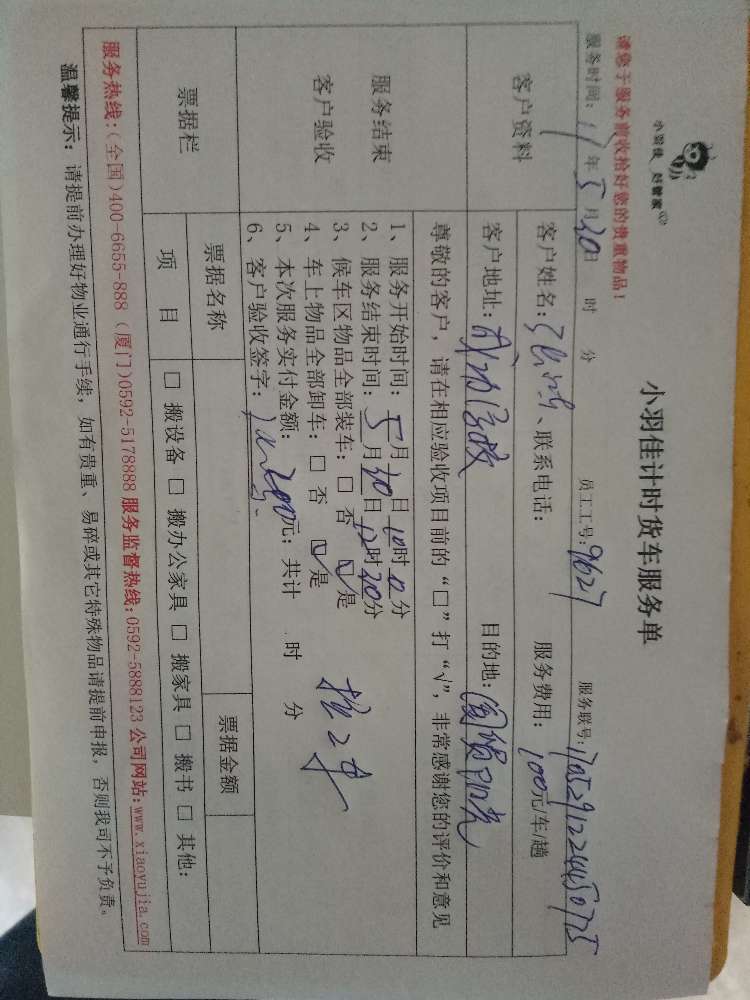 小羽佳 好管家
小羽佳计时货车服务单
请您于服务前收拾好您的贵重物品!
服务时间: 17年5月30日 时 分 员工工号: 9627 服务联号:
客户资料
客户姓名: 、联系电话: 服务费用: 100元/车/趟
客户地址: 目的地:
尊敬的客户, 请在相应验收项目前的“□”打“√”, 非常感谢您的评价和意见
服务结束
客户验收
1、服务开始时间: 5月30日10时0分
2、服务结束时间: 5月30日12时20分
3、候车区物品全部装车: □ 否 ☑ 是
4、车上物品全部卸车: □ 否 ☑ 是
5、本次服务实付金额: 200元; 共计 时 分
6、客户验收签字:
票据栏 票据名称 票据金额
项 目 □ 搬设备 □ 搬办公家具 □ 搬家具 □ 搬书 □ 其他:
服务热线:(全国)400-6655-888 (厦门)0592-5178888 服务监督热线:0592-5888123 公司网站:www.xiaoyujia.com
温馨提示: 请提前办理好物业通行手续, 如有贵重、易碎或其它特殊物品请提前申报, 否则我司不予负责。